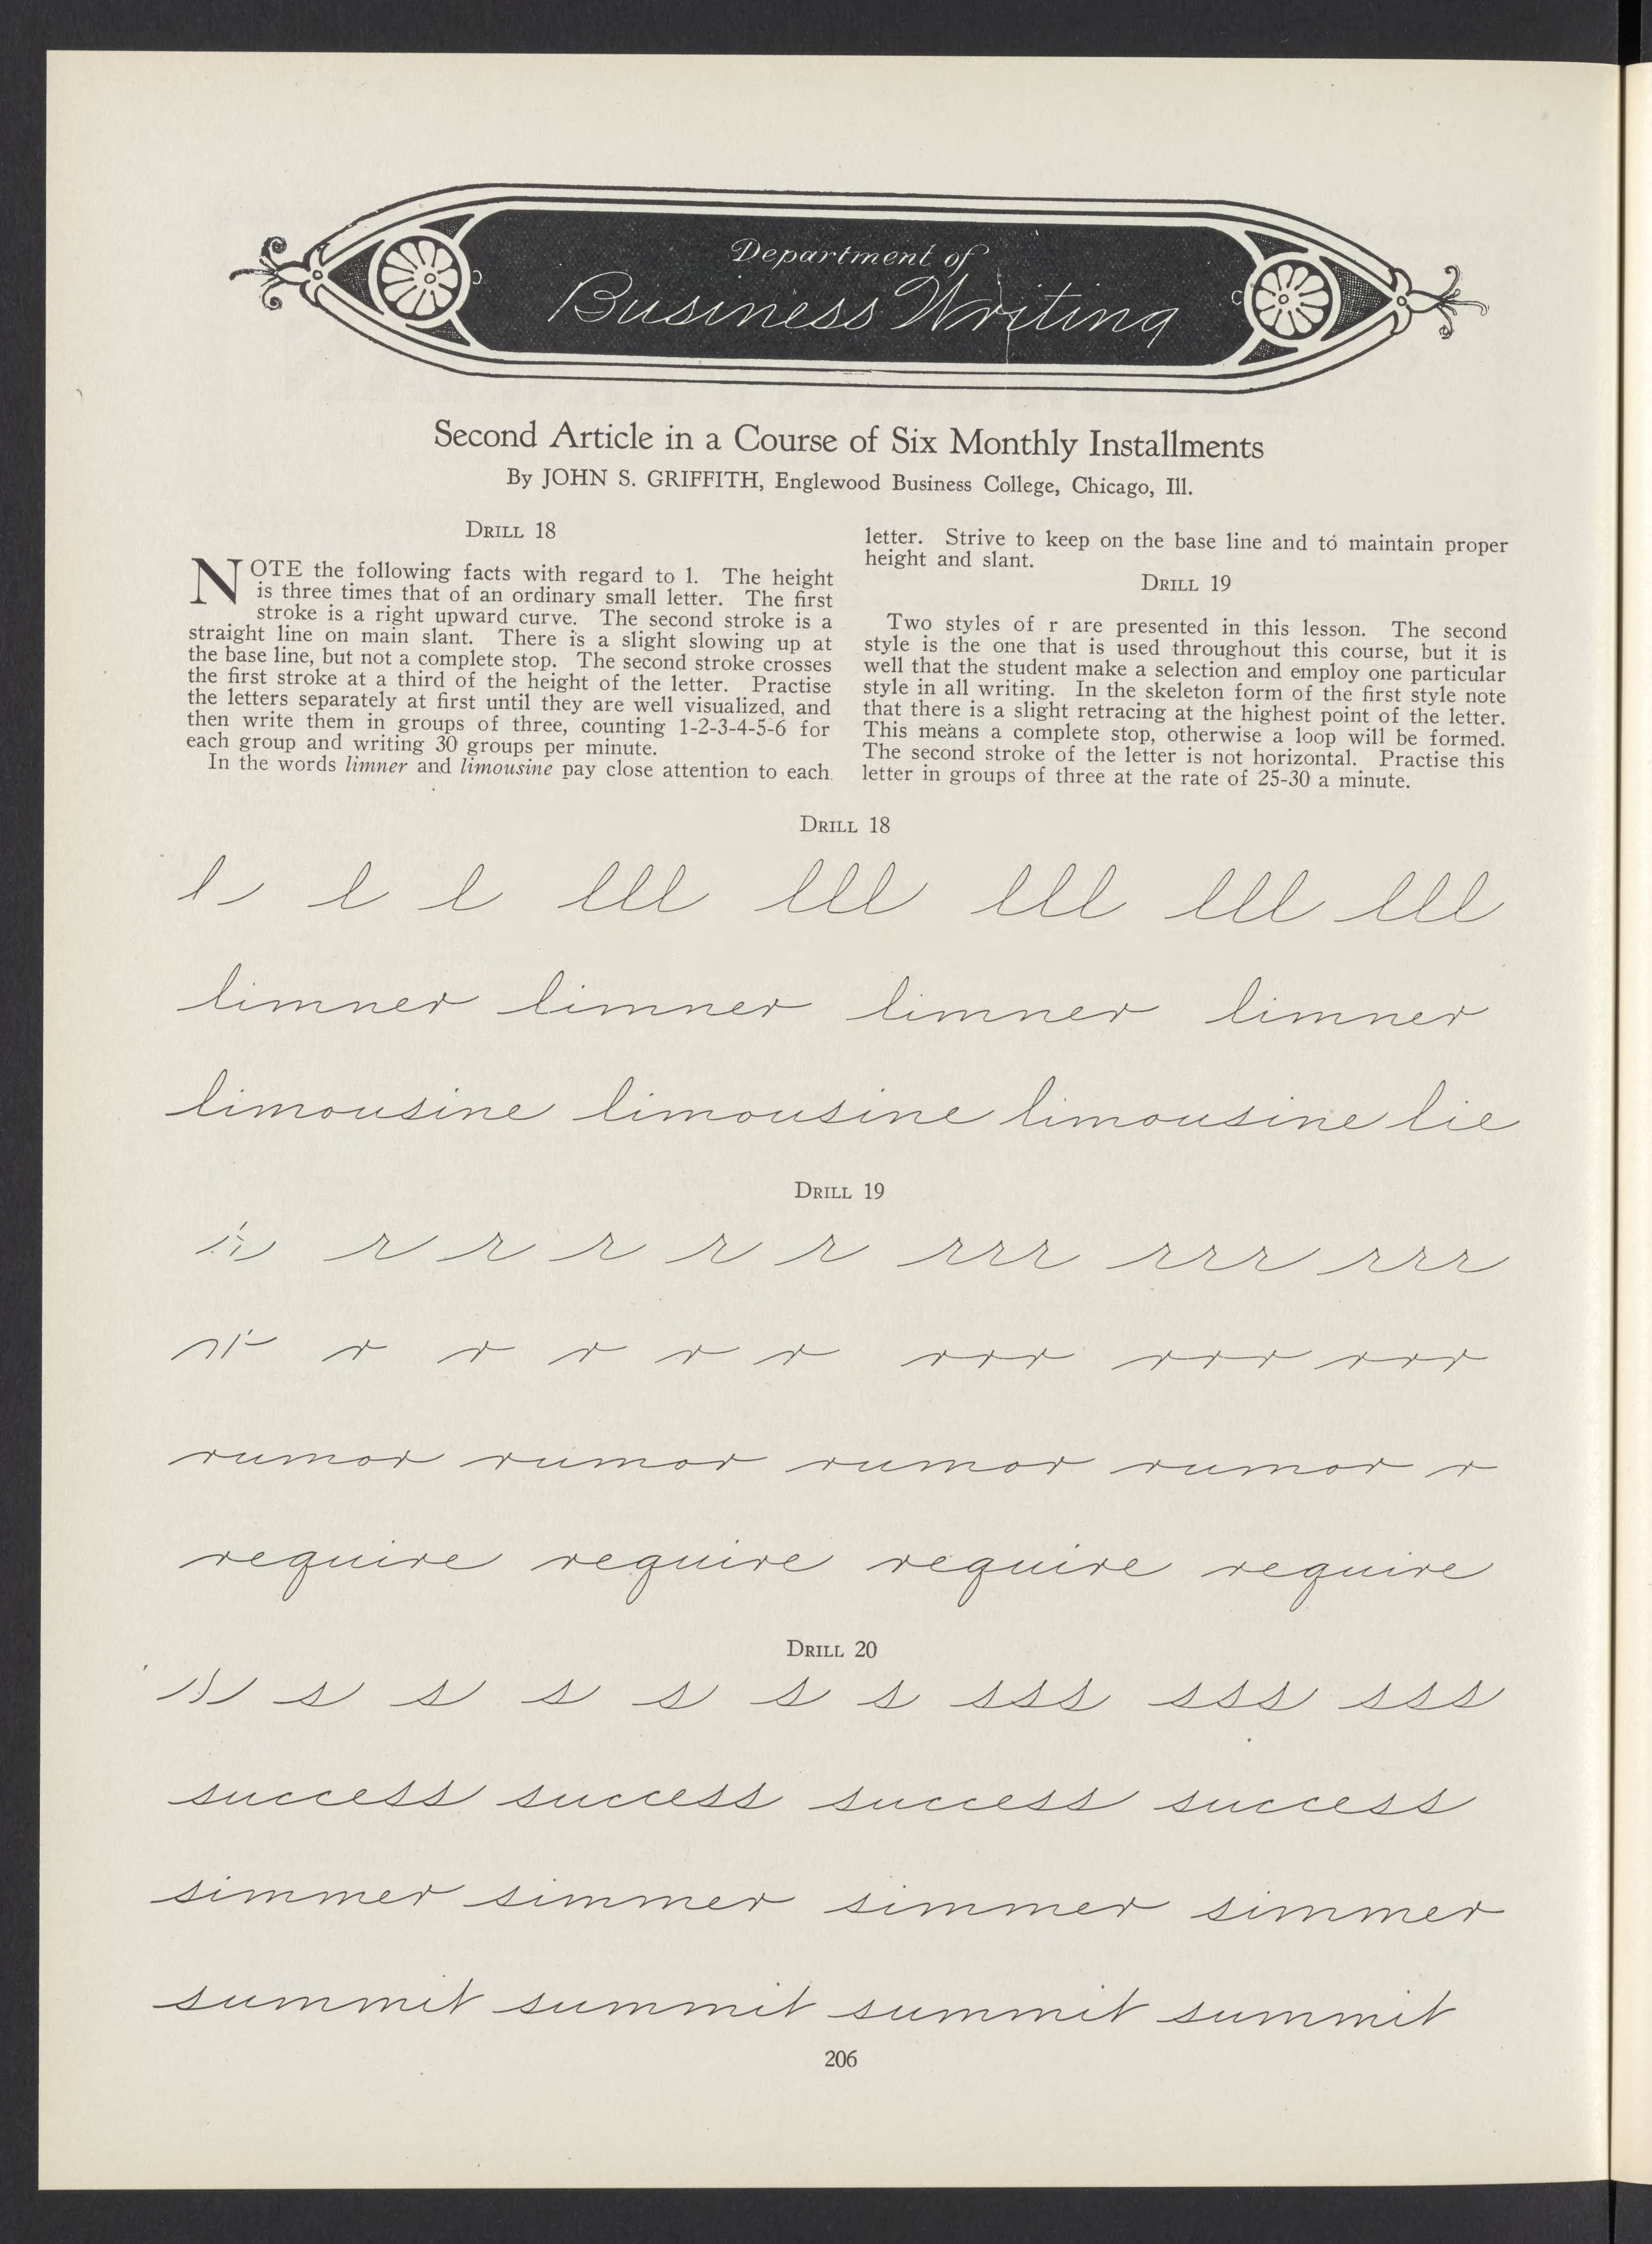 Department of
Business Writing
Second Article in a Course of Six Monthly Installments
By JOHN S. GRIFFITH, Englewood Business College, Chicago, Ill.
DRILL 18
NOTE the following facts with regard to l. The height
is three times that of an ordinary small letter. The first
stroke is a right upward curve. The second stroke is a
straight line on main slant. There is a slight slowing up at
the base line, but not a complete stop. The second stroke crosses
the first stroke at a third of the height of the letter. Practise
the letters separately at first until they are well visualized, and
then write them in groups of three, counting 1-2-3-4-5-6 for
each group and writing 30 groups per minute.
In the words limner and limousine pay close attention to each
letter. Strive to keep on the base line and to maintain proper
height and slant.
DRILL 19
Two styles of r are presented in this lesson. The second
style is the one that is used throughout this course, but it is
well that the student make a selection and employ one particular
style in all writing. In the skeleton form of the first style note
that there is a slight retracing at the highest point of the letter.
This means a complete stop, otherwise a loop will be formed.
The second stroke of the letter is not horizontal. Practise this
letter in groups of three at the rate of 25-30 a minute.
DRILL 18
l l l lll lll lll lll lll
limner limner limner limner
limousine limousine limousine lie
DRILL 19
r r r r r r rrr rrr rrr
r r r r r r rrr rrr rrr
rumor rumor rumor rumor r
require require require require
DRILL 20
s s s s s s s sss sss sss
success success success success
simmer simmer simmer simmer
summit summit summit summit
206